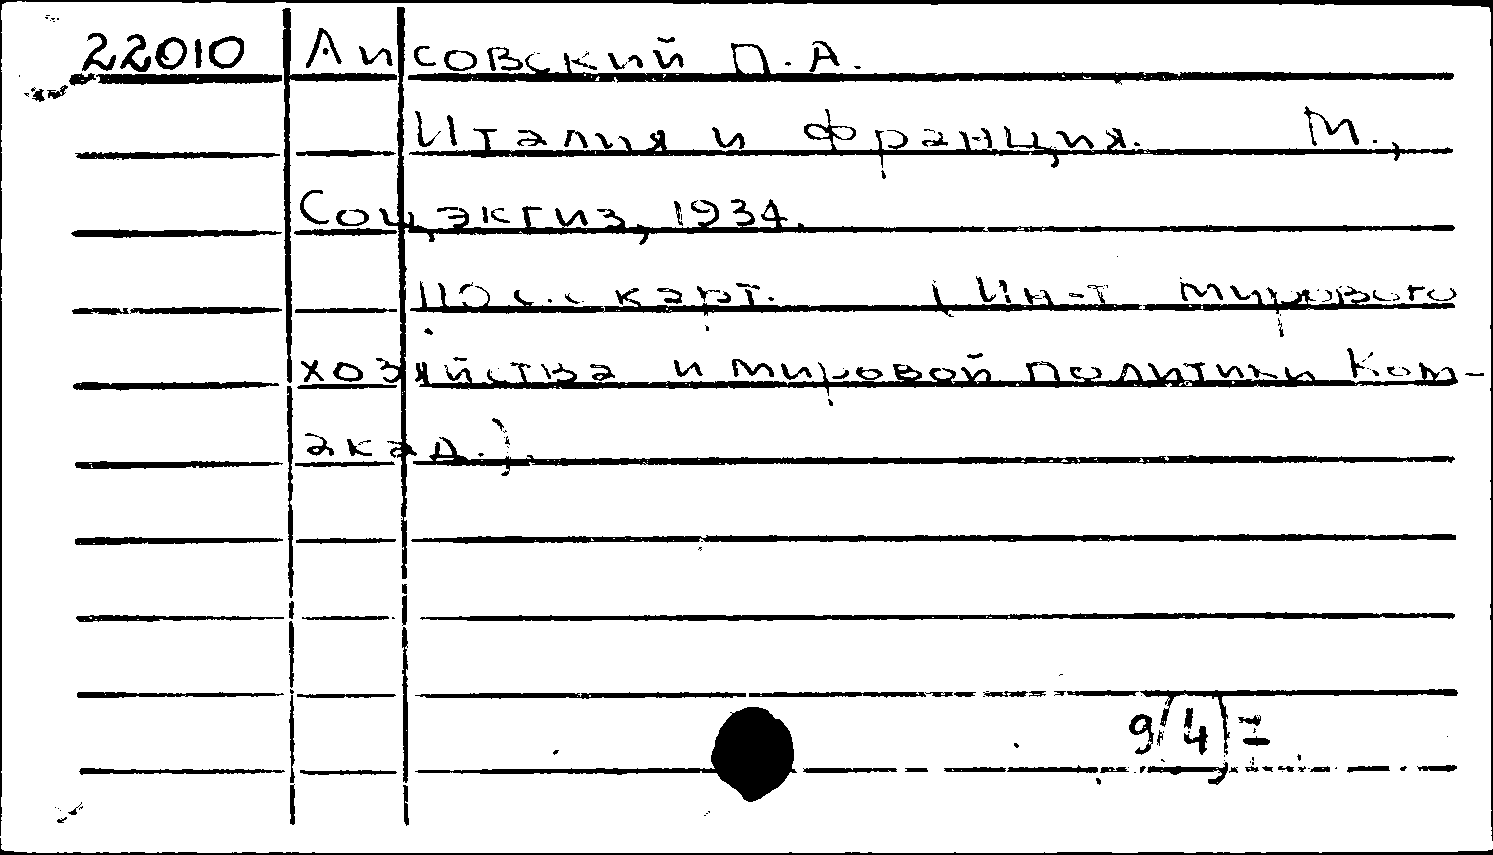 22010 Лисовский П.А.
Италия и Франция. М.,
Соцэкгиз, 1934.
110 с. с карт. (Ин-т мирового
хозяйства и мировой политики Ком-
акад.).
9(4)I